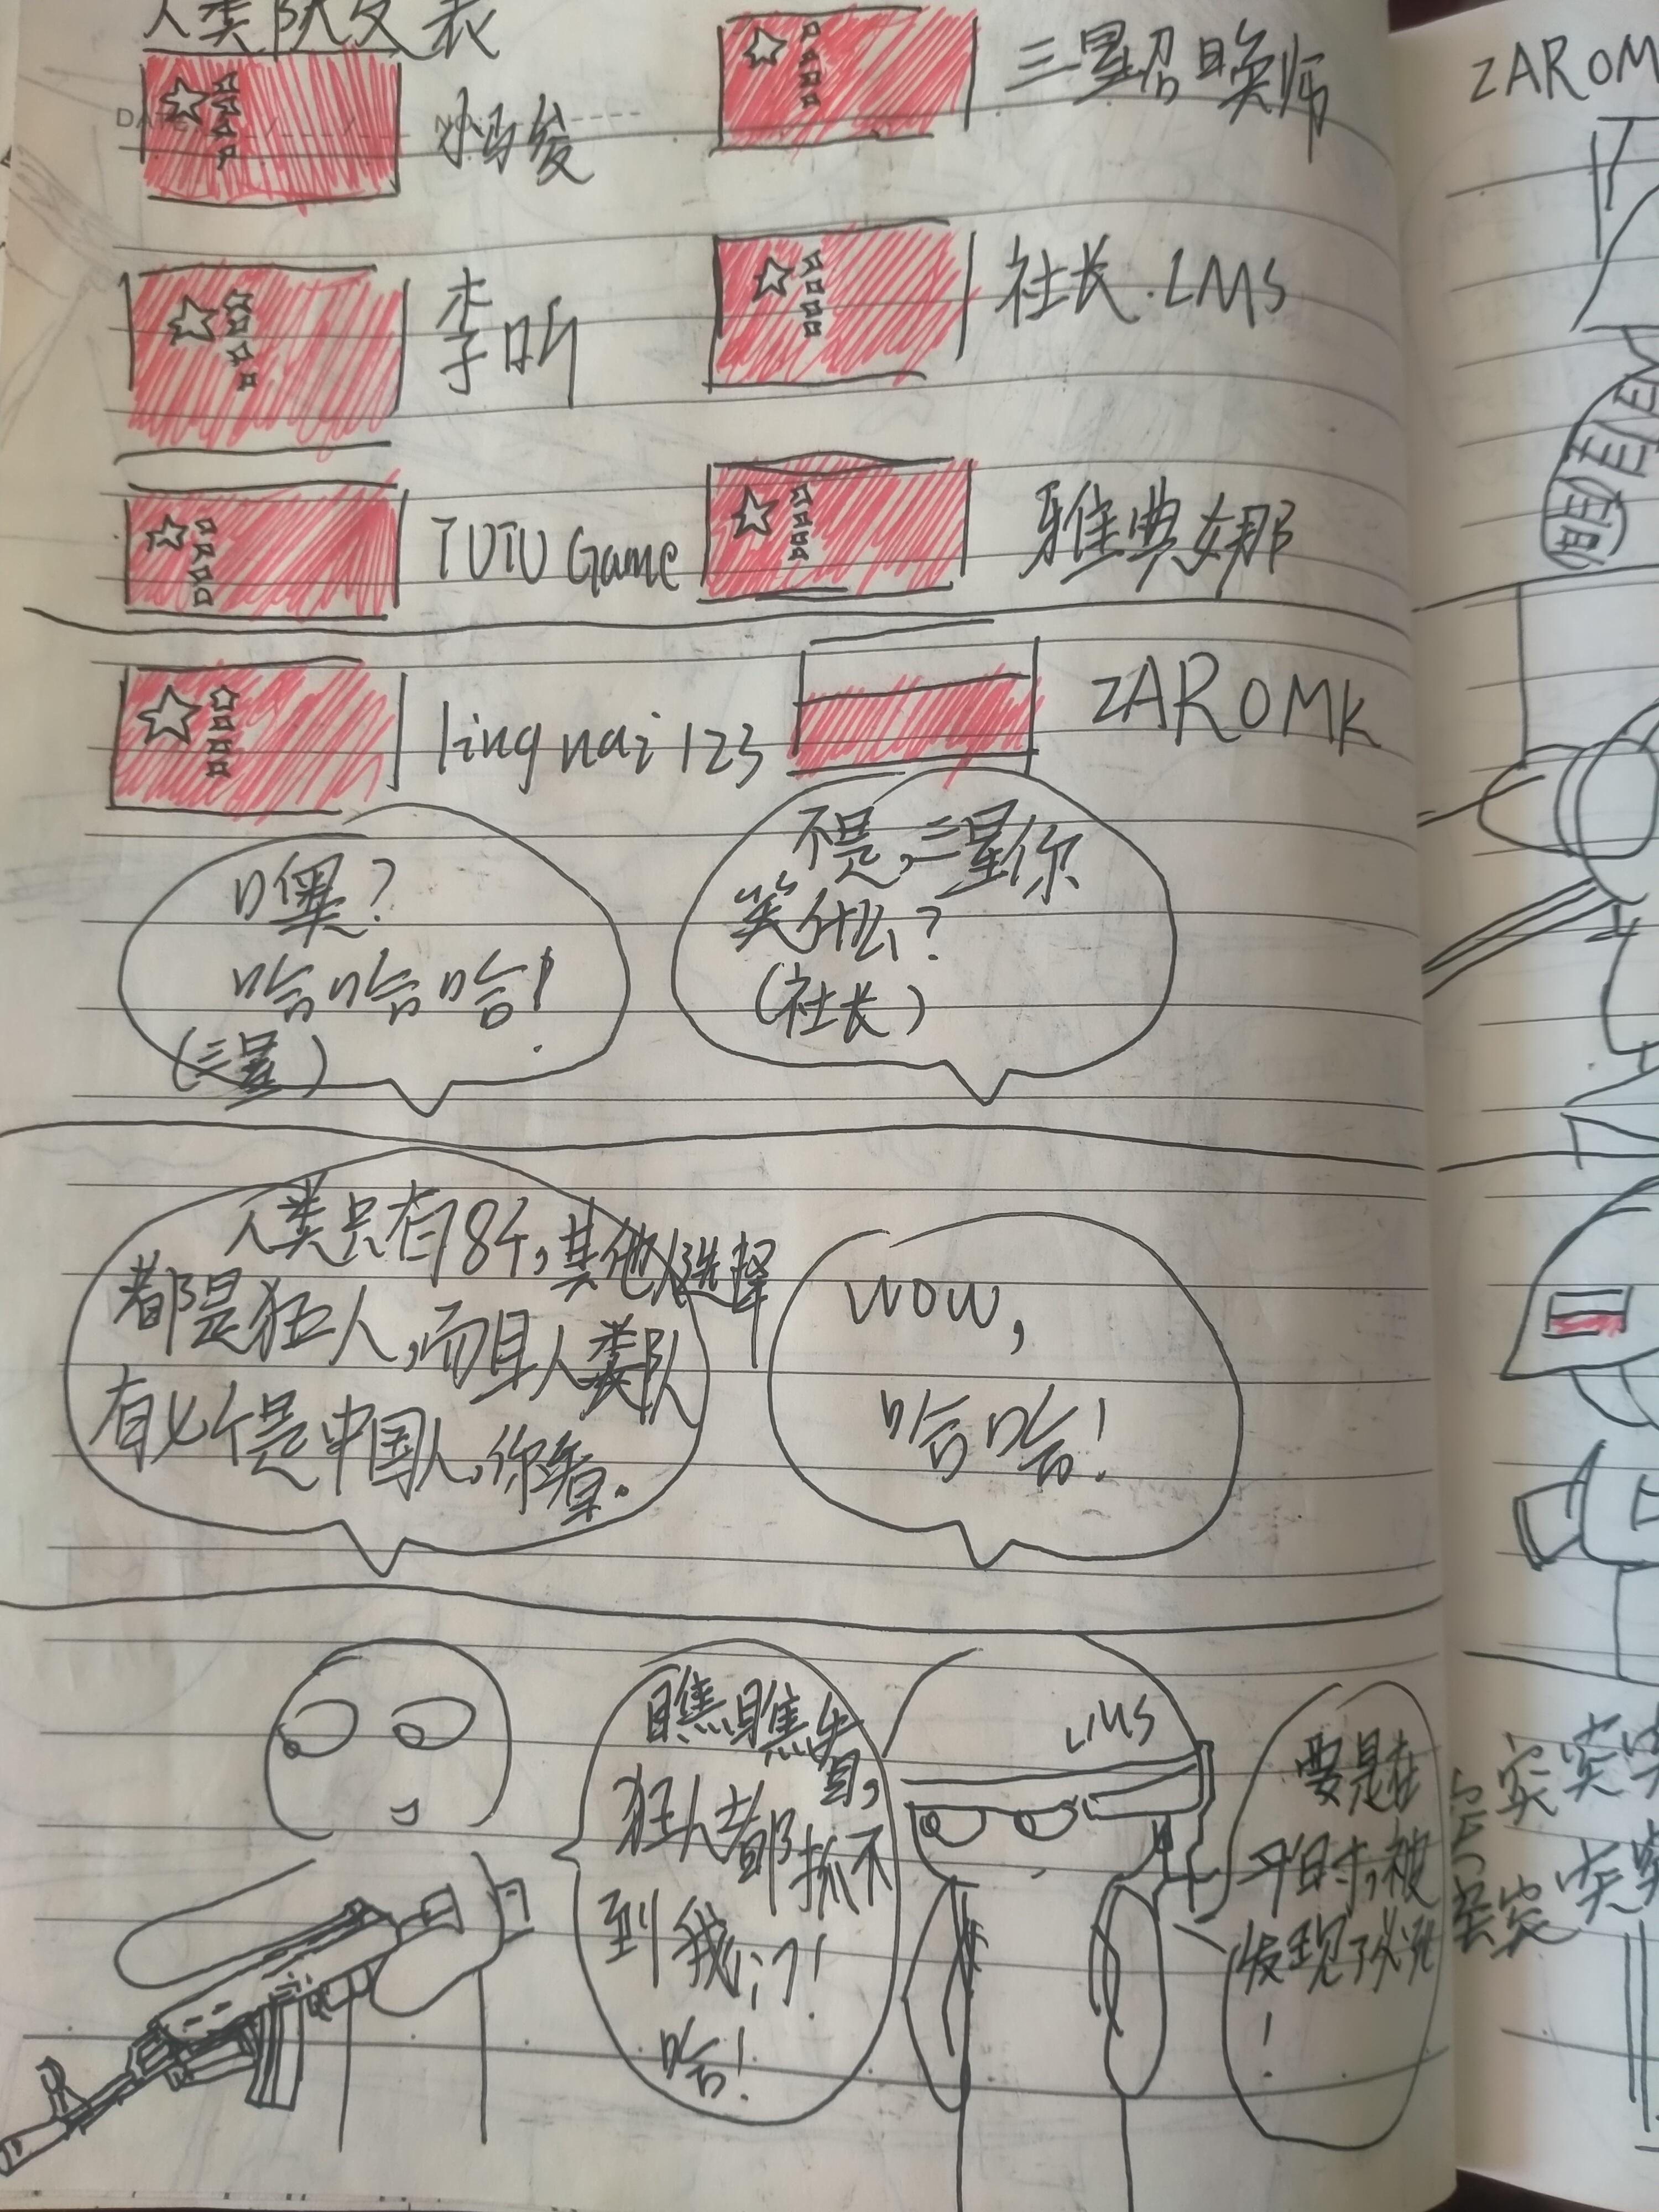 人类队友表
三星召唤师
李昕
社长.LMS
TUTU Game
雅典娜
lingnai123
ZAROMK
噢?
哈哈哈!
(三星)
不是,三星你
笑什么?
(社长)
人类只有8个,其他人选择
都是狂人,而且人类队
有7个是中国人,你看.
WOW,
哈哈!
瞧瞧看,
狂人都抓不
到我们!
哈!
LMS
要是在
平时,被
发现了必死
!
ZAROM
突突
突突